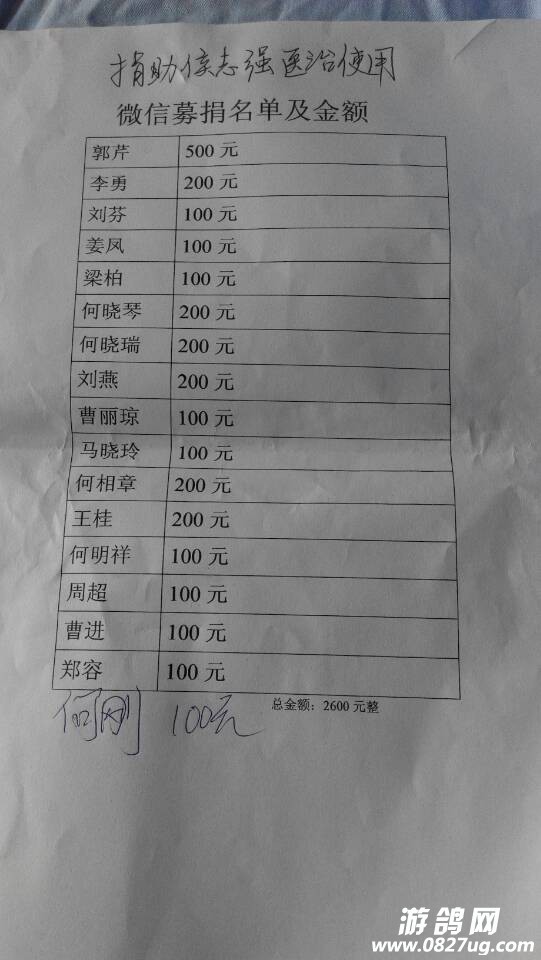 捐助侯志强医治使用
微信募捐名单及金额
郭芹 500 元
李勇 200 元
刘芬 100 元
姜凤 100 元
梁柏 100 元
何晓琴 200 元
何晓瑞 200 元
刘燕 200 元
曹丽琼 100 元
马晓玲 100 元
何相章 200 元
王桂 200 元
何明祥 100 元
周超 100 元
曹进 100 元
郑容 100 元
总金额：2600 元整
何刚 100元
游鸽网
www.0827ug.com